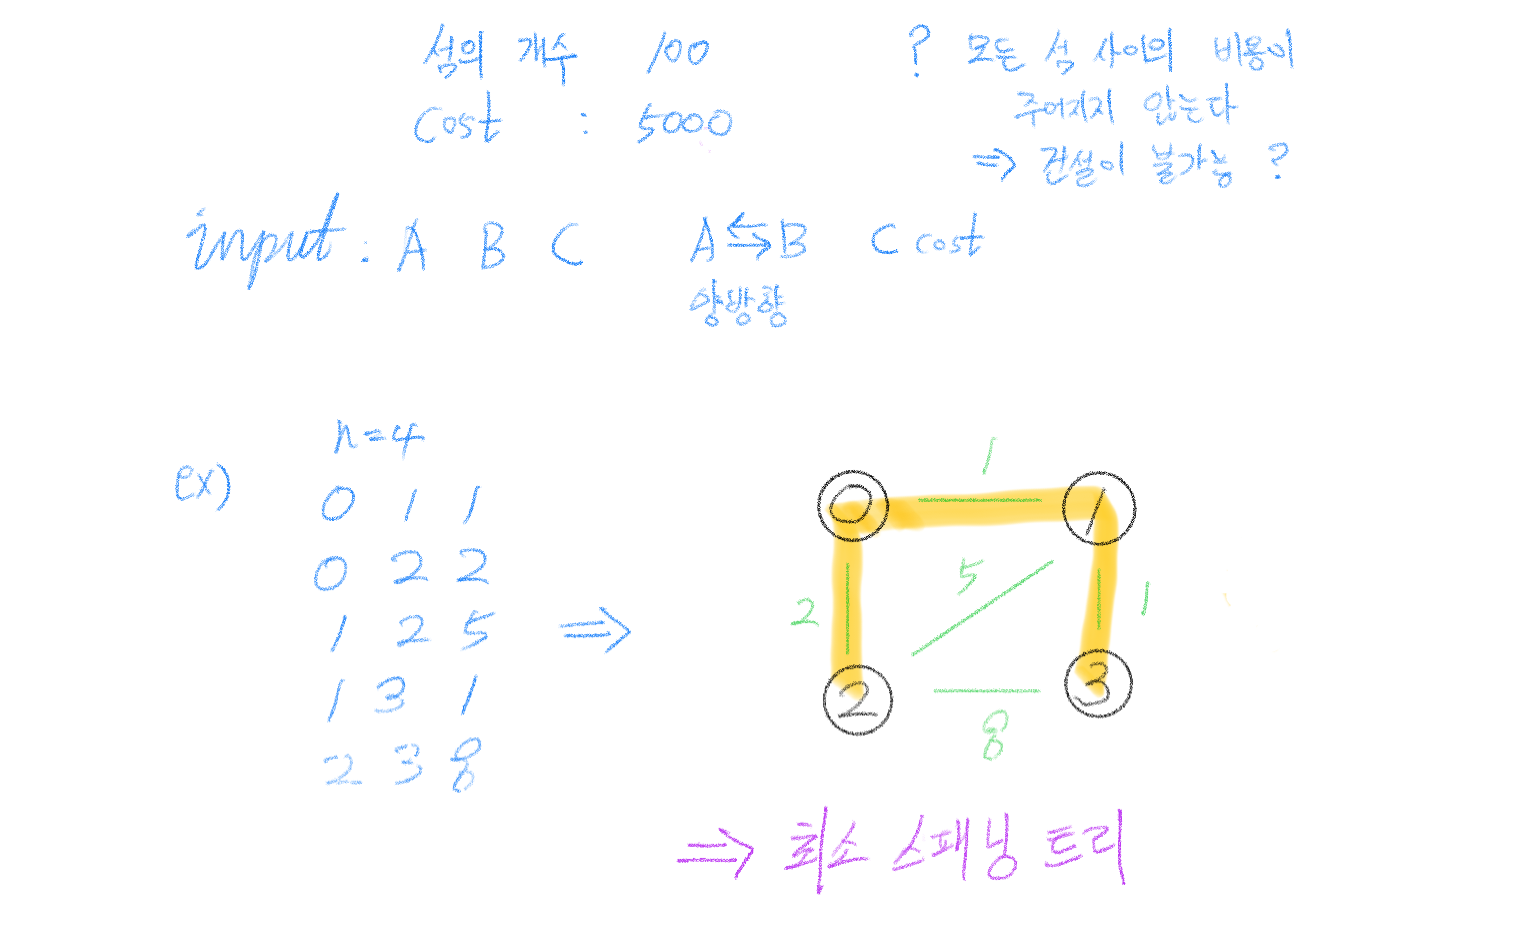 섬의 개수 100
cost : 5000
? 모든 섬 사이의 비용이
주어지지 않는다
⇒ 건설이 불가능 ?
input : A B C A ⇆ B C cost
양방향
ex)
n=4
0 1 1
0 2 2
1 2 5
1 3 1
2 3 8
⇒
1
0 1
5
2 1
2 3
8
⇒ 최소 스패닝 트리